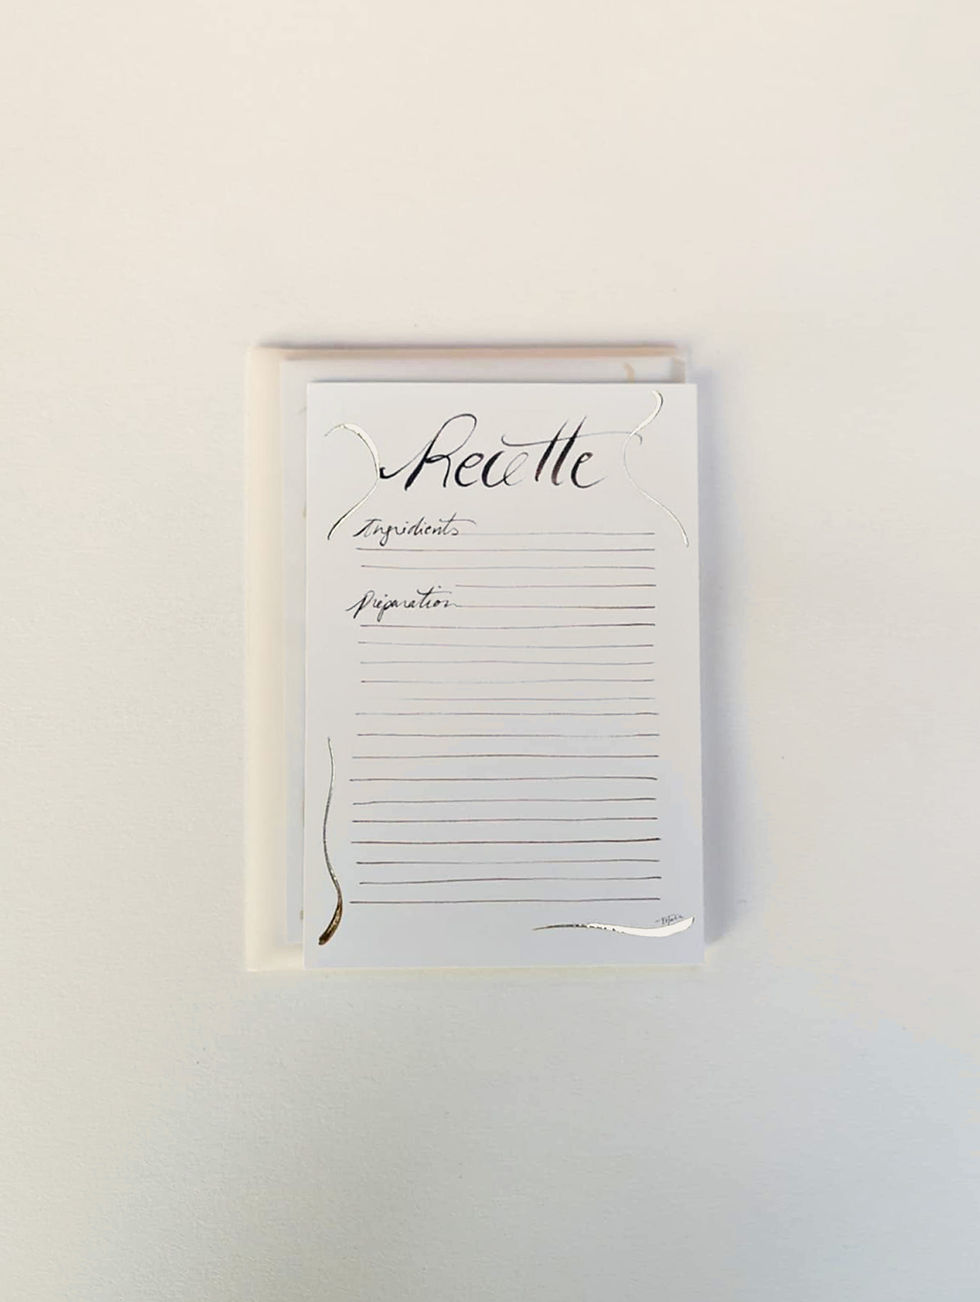 Recette
Ingrédients
Préparation